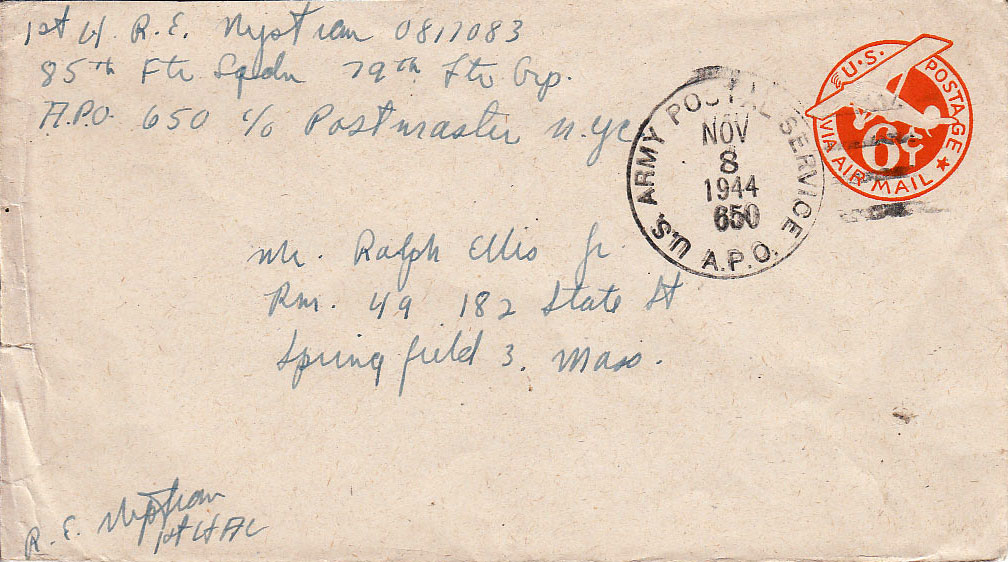 1st Lt. R. E. Nystrom 0817083
85th Ftr Sqdn 79th Ftr Grp.
A.P.O. 650 c/o Postmaster N.Y.C
U.S. POSTAGE
6¢
VIA AIR MAIL
U.S. ARMY POSTAL SERVICE
NOV
8
1944
650
A.P.O.
Mr. Ralph Ellis Jr
Rm. 49 182 State St
Springfield 3, Mass.
R. E. Nystrom
1st Lt AC